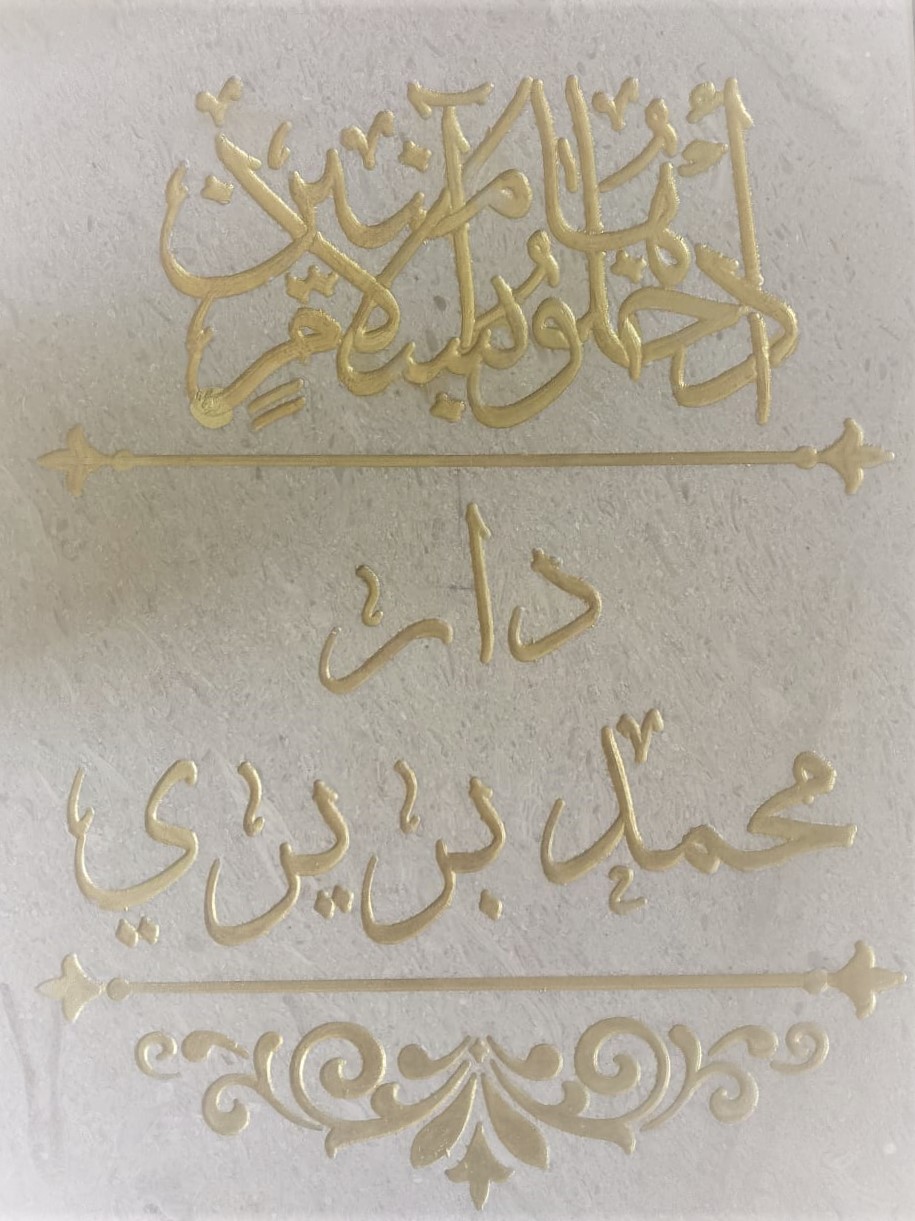 أدخلوها بسلام آمنين
دار
محمد بريري